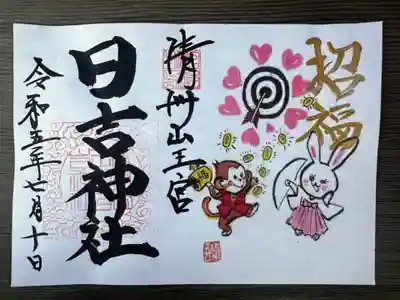 招福
清州山王宮
日吉神社
令和五年七月十日